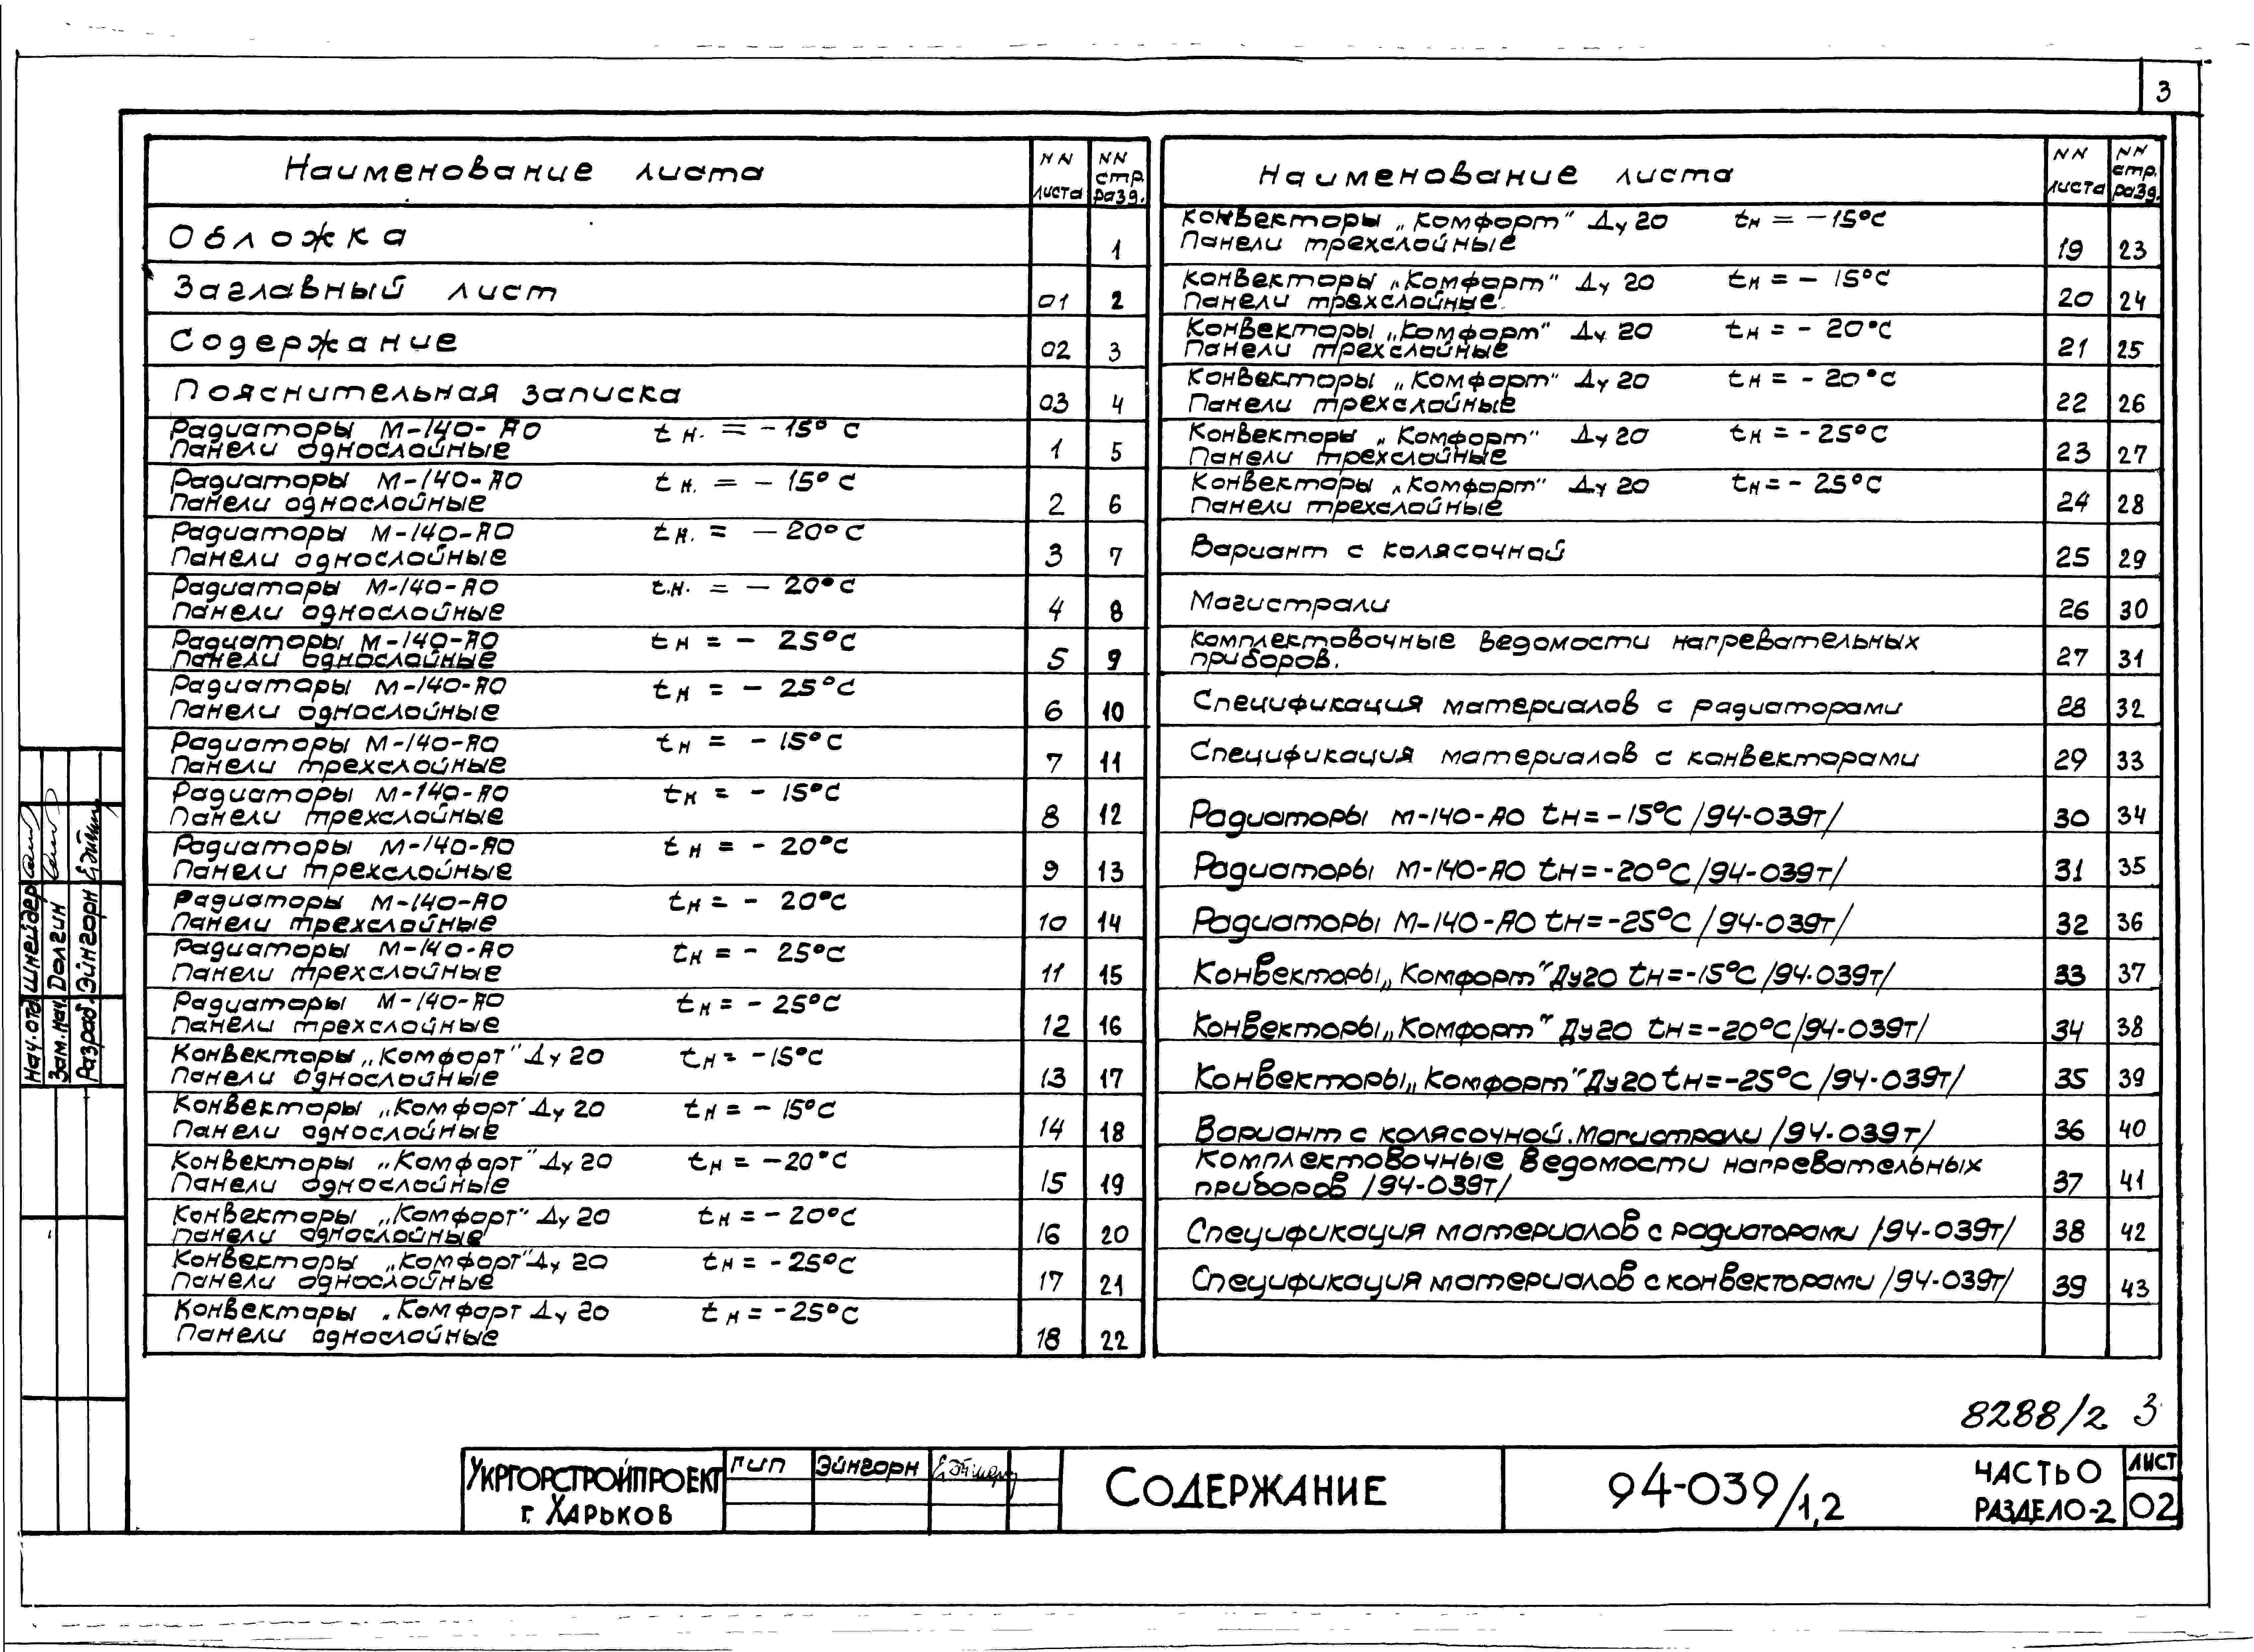 3
Наименование листа NN листа NN стр. разд.
Обложка 1
Заглавный лист 01 2
Содержание 02 3
Пояснительная записка 03 4
Радиаторы М-140-АО tн. = -15°С
Панели однослойные 1 5
Радиаторы М-140-АО tн. = -15°С
Панели однослойные 2 6
Радиаторы М-140-АО tн. = -20°С
Панели однослойные 3 7
Радиаторы М-140-АО t.н. = -20°С
Панели однослойные 4 8
Радиаторы М-140-АО tн = -25°С
Панели однослойные 5 9
Радиаторы М-140-АО tн = -25°С
Панели однослойные 6 10
Радиаторы М-140-АО tн = -15°С
Панели трехслойные 7 11
Радиаторы М-140-АО tн = -15°С
Панели трехслойные 8 12
Радиаторы М-140-АО tн = -20°С
Панели трехслойные 9 13
Радиаторы М-140-АО tн = -20°С
Панели трехслойные 10 14
Радиаторы М-140-АО tн = -25°С
Панели трехслойные 11 15
Радиаторы М-140-АО tн = -25°С
Панели трехслойные 12 16
Конвекторы „Комфорт" Ду 20 tн = -15°С
Панели однослойные 13 17
Конвекторы „Комфорт" Ду 20 tн = -15°С
Панели однослойные 14 18
Конвекторы „Комфорт" Ду 20 tн = -20°С
Панели однослойные 15 19
Конвекторы „Комфорт" Ду 20 tн = -20°С
Панели однослойные 16 20
Конвекторы „Комфорт" Ду 20 tн = -25°С
Панели однослойные 17 21
Конвекторы „Комфорт Ду 20 tн = -25°С
Панели однослойные 18 22
Наименование листа NN листа NN стр. разд.
Конвекторы „Комфорт" Ду 20 tн = -15°С
Панели трехслойные 19 23
Конвекторы „Комфорт" Ду 20 tн = -15°С
Панели трехслойные. 20 24
Конвекторы „Комфорт" Ду 20 tн = -20°С
Панели трехслойные 21 25
Конвекторы „Комфорт" Ду 20 tн = -20°С
Панели трехслойные 22 26
Конвекторы „Комфорт" Ду 20 tн = -25°С
Панели трехслойные 23 27
Конвекторы „Комфорт" Ду 20 tн = -25°С
Панели трехслойные 24 28
Вариант с колясочной 25 29
Магистрали 26 30
Комплектовочные ведомости нагревательных
приборов. 27 31
Спецификация материалов с радиаторами 28 32
Спецификация материалов с конвекторами 29 33
Радиаторы М-140-АО tн=-15°С /94-039т/ 30 34
Радиаторы М-140-АО tн=-20°С /94-039т/ 31 35
Радиаторы М-140-АО tн=-25°С /94-039т/ 32 36
Конвекторы „Комфорт" Ду20 tн=-15°С /94-039т/ 33 37
Конвекторы „Комфорт" Ду20 tн=-20°С /94-039т/ 34 38
Конвекторы „Комфорт" Ду20 tн=-25°С /94-039т/ 35 39
Вариант с колясочной. Магистрали /94-039т/ 36 40
Комплектовочные ведомости нагревательных
приборов /94-039т/ 37 41
Спецификация материалов с радиаторами /94-039т/ 38 42
Спецификация материалов с конвекторами /94-039т/ 39 43
Нач. отд. Шнейдер
Зам. нач. Долгин
Разраб. Эйнгорн
8288/2 3
Укргорстройпроект
г. Харьков
ГИП Эйнгорн
Содержание
94-039/1,2
Часть 0
Раздел 0-2
Лист
02